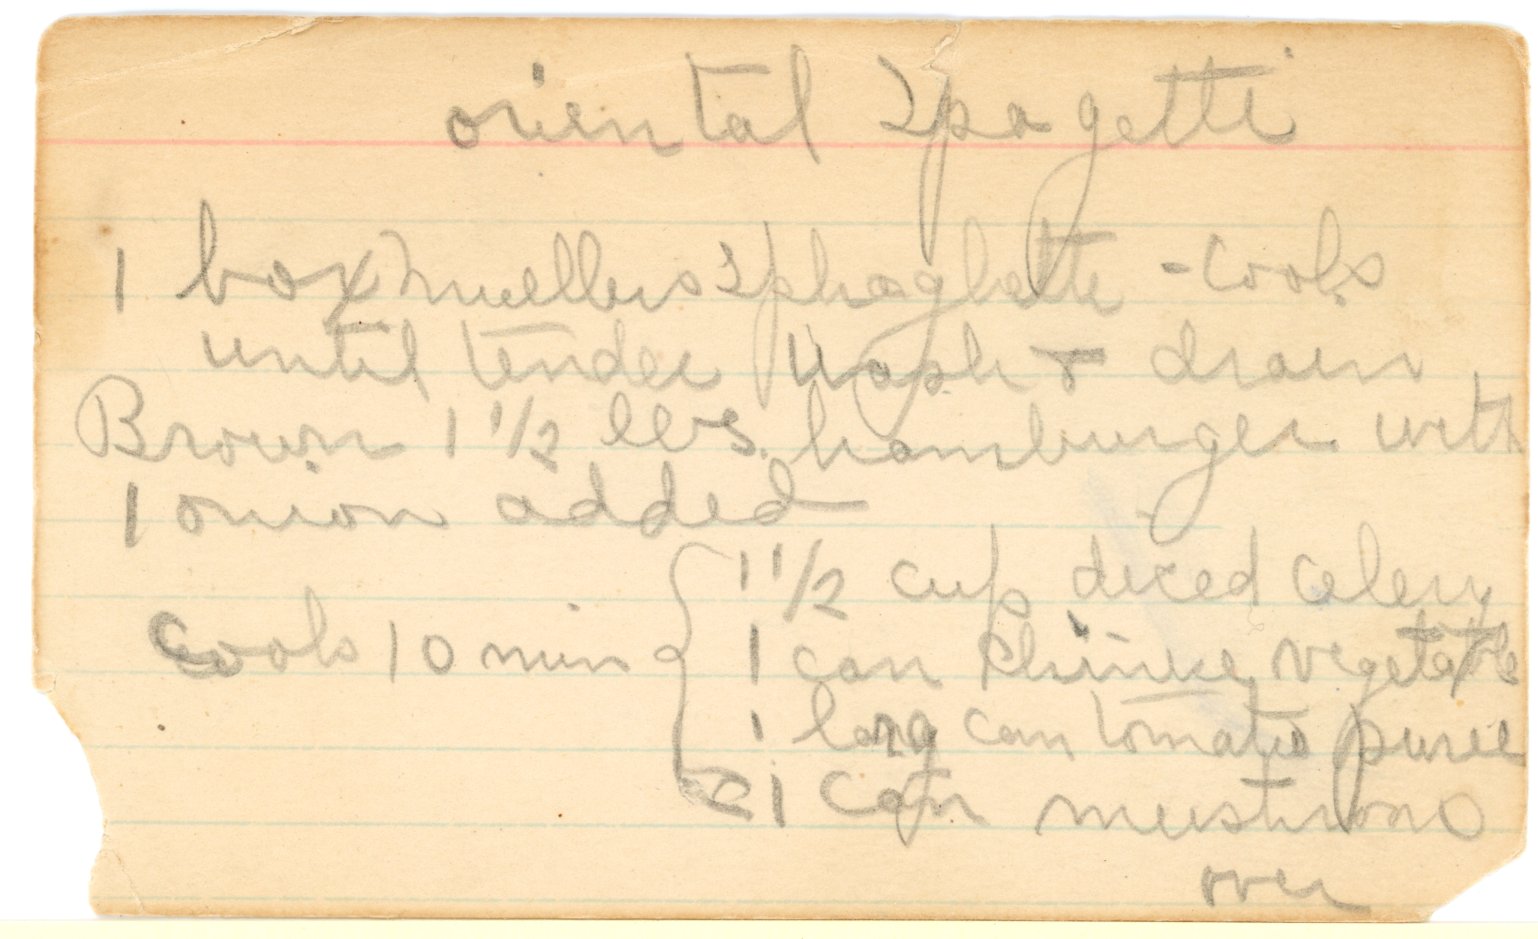 oriental Spagetti
1 box muellers Sphaghette - Cook
until tender Wash & drain
Brown 1 1/2 lbs. hamburger with
1 onion added
Cook 10 min { 1 1/2 cup diced celery
1 can Chinese vegetable
1 larg can tomato puree
1 Can mustroom
over